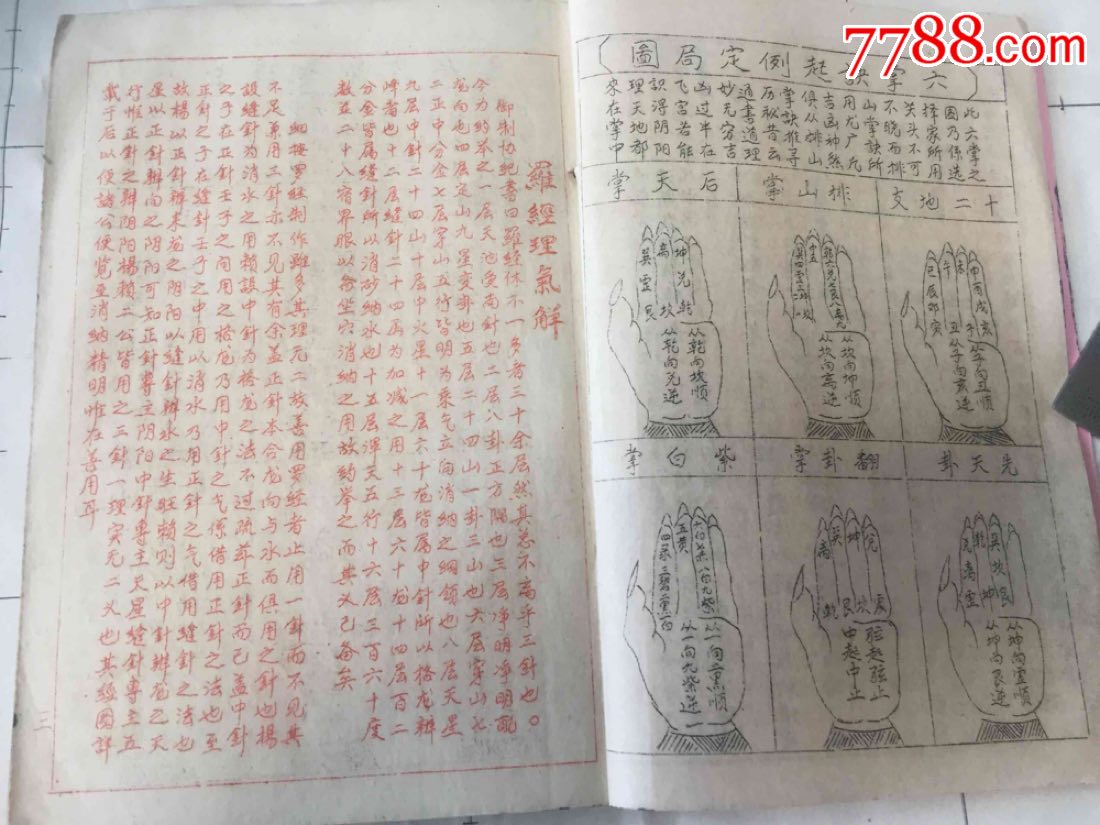 7788.com
六掌訣起例定局圖
此六掌之
因乃係选
择家所用
关头不可
不脫而排
山掌訣所
用尤广凡
吉凶神然
俱从排山
掌訣推寻
历秘昔云
通書道理
妙无容吉
凶过半在
飞宫若能
識得阴阳
理天地都
来在掌中
十二地支
申酉戌亥
未
午
巳辰卯寅
丑
子
从子向丑順
从子向亥逆
排山掌
中五
从坎向坤順
从坎向离逆
后天掌
坤兑乾
离
坎
巽震艮
从乾向坎順
从乾向兑逆
先天卦
艮
坎
巽
坤
乾
兑离震
从坤向震順
从坤向艮逆
翻卦掌
兑
震
坤
坎
巽
艮
离
乾
起弦上
中起中止
紫白掌
六白七赤八白九紫
五黄
四录三碧二黑一白
从一向二黑順
从一向九紫逆
羅經理氣解
御制协紀書四羅經体不一多者三十余层然其总不离乎三針也。
今为約举之一层天池受南針也二层八卦正方隅也三层净明净明配
龙向也四层定山九星变卦也五层二十四山一卦三山也六层穿山七
二正中分金七层穿山五行皆明为乘气立向消納之綱領也八层天星
九层中針二十四山十层中火星十一层六十龙皆属中針所以格龙辨
峰者也十二层縫針二十四局为加减之用十三层六十龙十四层百二
分金皆属縫針所以消砂納水也十五层渾天五行十六层三百六十度
数五二十八宿界限以备坐穴消納之用故約举之而其义已备矣
細按罗經制作虽多其理元二故善用罗經者止用一針而不见其
不足弟用三針亦不见其有余盖正針本合龙向与水而俱用之針也楊
設縫針为消水之用賴設中針为格龙之法不过疏茸正針而已盖中針
之子在正針壬子之间用之格龙乃用中針之气係借用正針之法也至
正針之子在縫針壬子之中用以消水乃用正針之气借用縫針之法也
故楊以正針辨来龙之阴阳以縫針辨水之生旺賴则以中針辨龙之天
星以正針辨向之阴阳可知正針專主阴阳中針專主天星縫針專主五
行惟正針之辨阴阳楊賴二公皆用之三針一理实无二义也其經图詳
載于后以便諸公便览至消納精明惟在善用耳
三